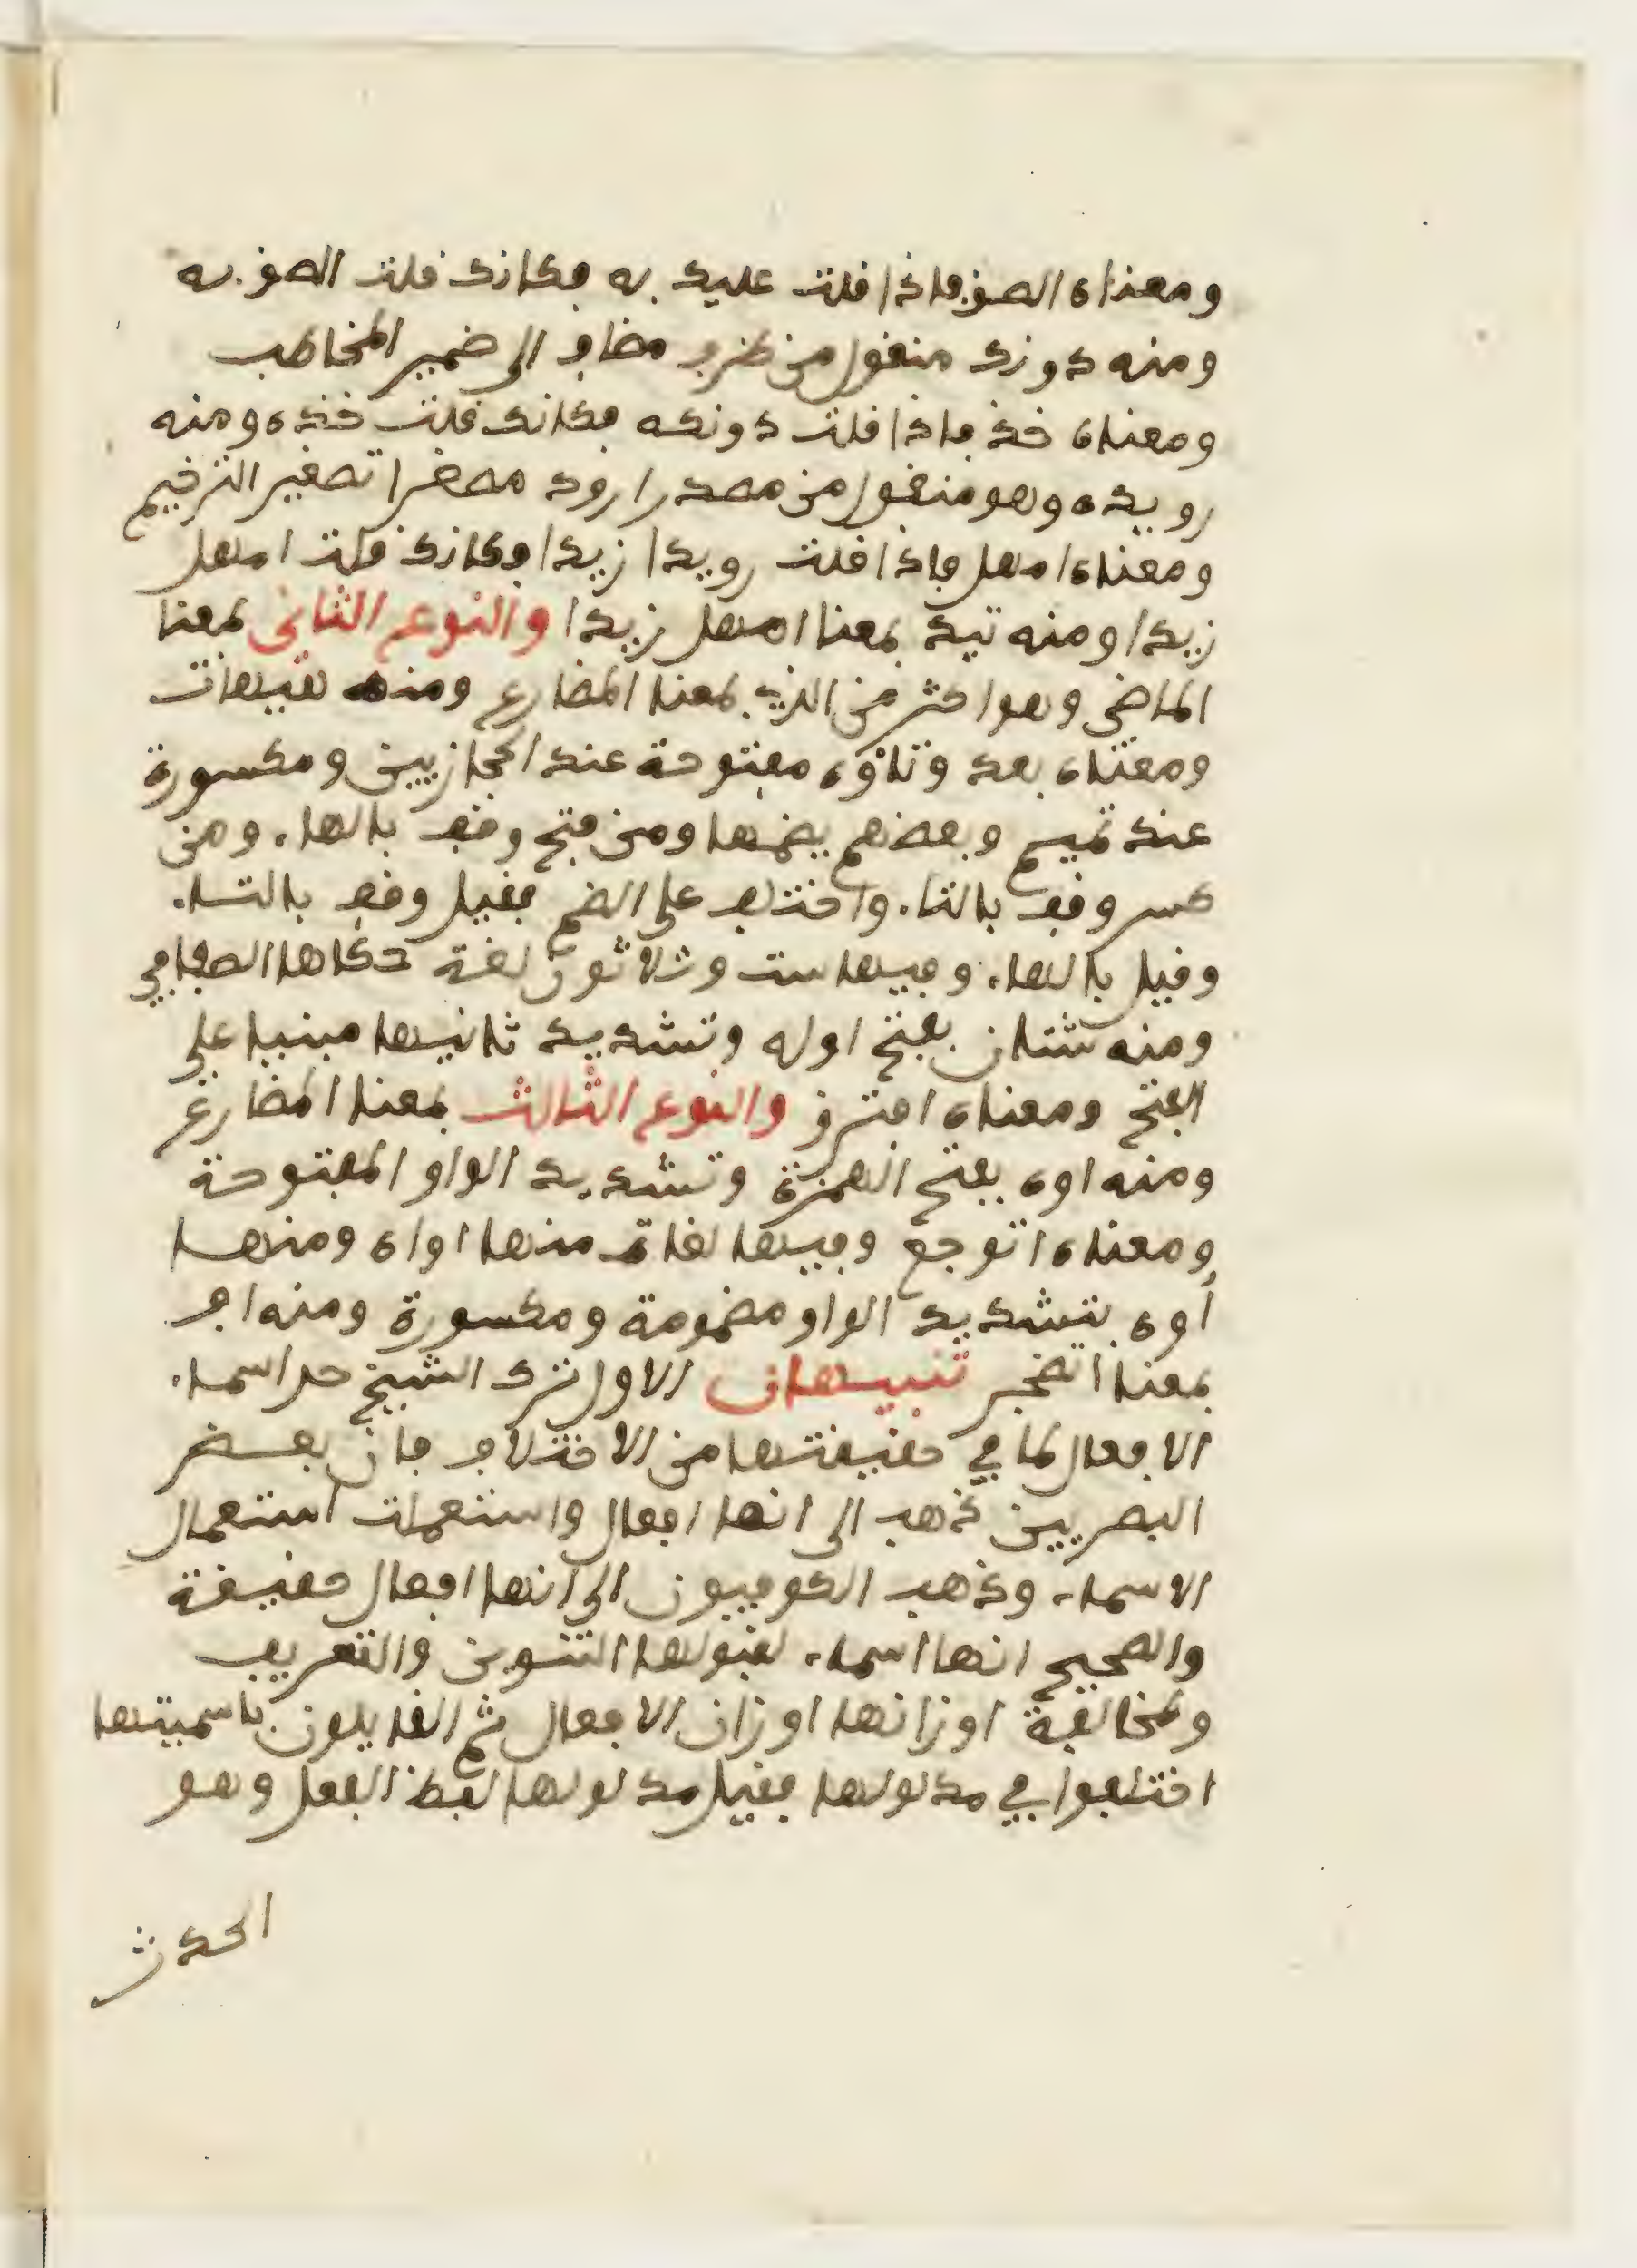 ومعناه الصق فاذا قلت عليك به فكانك قلت الصق به
ومنه دونك منقول من ظرف مضاف الى ضمير المخاطب
ومعناه خذ فاذا قلت دونكه فكانك قلت خذه ومنه
رويده وهو منقول من مصدر ارود مصغرا تصغير الترخيم
ومعناه امهل فاذا قلت رويدا زيدا فكانك قلت امهل
زيدا ومنه تيد بمعنا امهل زيدا والنوع الثاني بمعنا
الماضي وهو اكثر من الذي بمعنا المضارع ومنه هيهات
ومعناه بعد وتاؤه مفتوحة عند الحجازيين ومكسورة
عند تميم وبعضهم يضمها ومن فتح وقف بالهاء ومن
كسر وقف بالتاء واختلف على الضم فقيل وقف بالتاء
وقيل بالهاء وفيها ست وثلاثون لغة حكاها الصفاقي
ومنه شتان بفتح اوله وتشديد ثانيها مبنيا على
الفتح ومعناه افترق والنوع الثالث بمعنا المضارع
ومنه اوه بفتح الهمزة وتشديد الواو المفتوحة
ومعناه اتوجع وفيها لغات منها اواه ومنها
أوه بتشديد الواو مضمومة ومكسورة ومنه اف
بمعنا اتضجر تنبيهان الاول ترك الشيخ حد اسماء
الافعال لما في حقيقتها من الاختلاف فان بعض
البصريين ذهب الى انها افعال واستعملت استعمال
الاسماء وذهب الكوفيون الى انها افعال حقيقة
والصحيح انها اسماء لقبولها التنوين والتعريف
ولمخالفة اوزانها اوزان الافعال ثم القايلون باسميتها
اختلفوا في مدلولها فقيل مدلولها لفظ الفعل وهو
الحدث